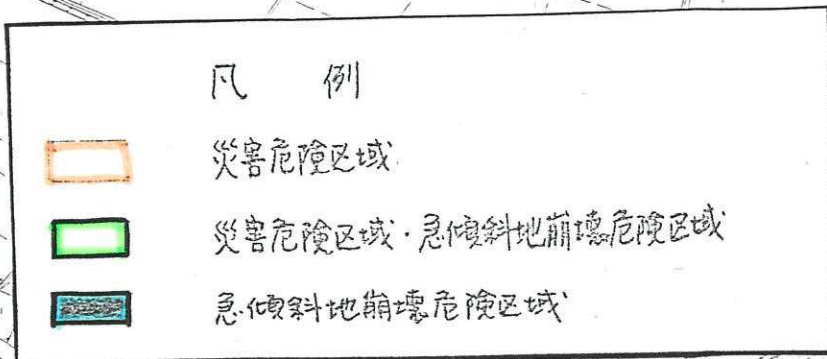 凡例
災害危険区域
災害危険区域・急傾斜地崩壊危険区域
急傾斜地崩壊危険区域